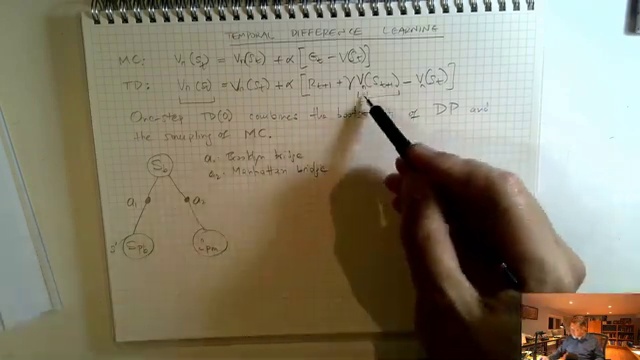 TEMPORAL DIFFERENCE LEARNING
MC: Vπ(St) = Vπ(St) + α [Gt − V(St)]
TD: Vπ(S) = Vπ(St) + α [Rt+1 + γ Vπ(St+1) − Vπ(St)]
One-step TD(0) combines the of DP and
the sampling of MC.
a1 Brooklyn bridge
a2: Manhattan bridge
S0
a1 a2
s'